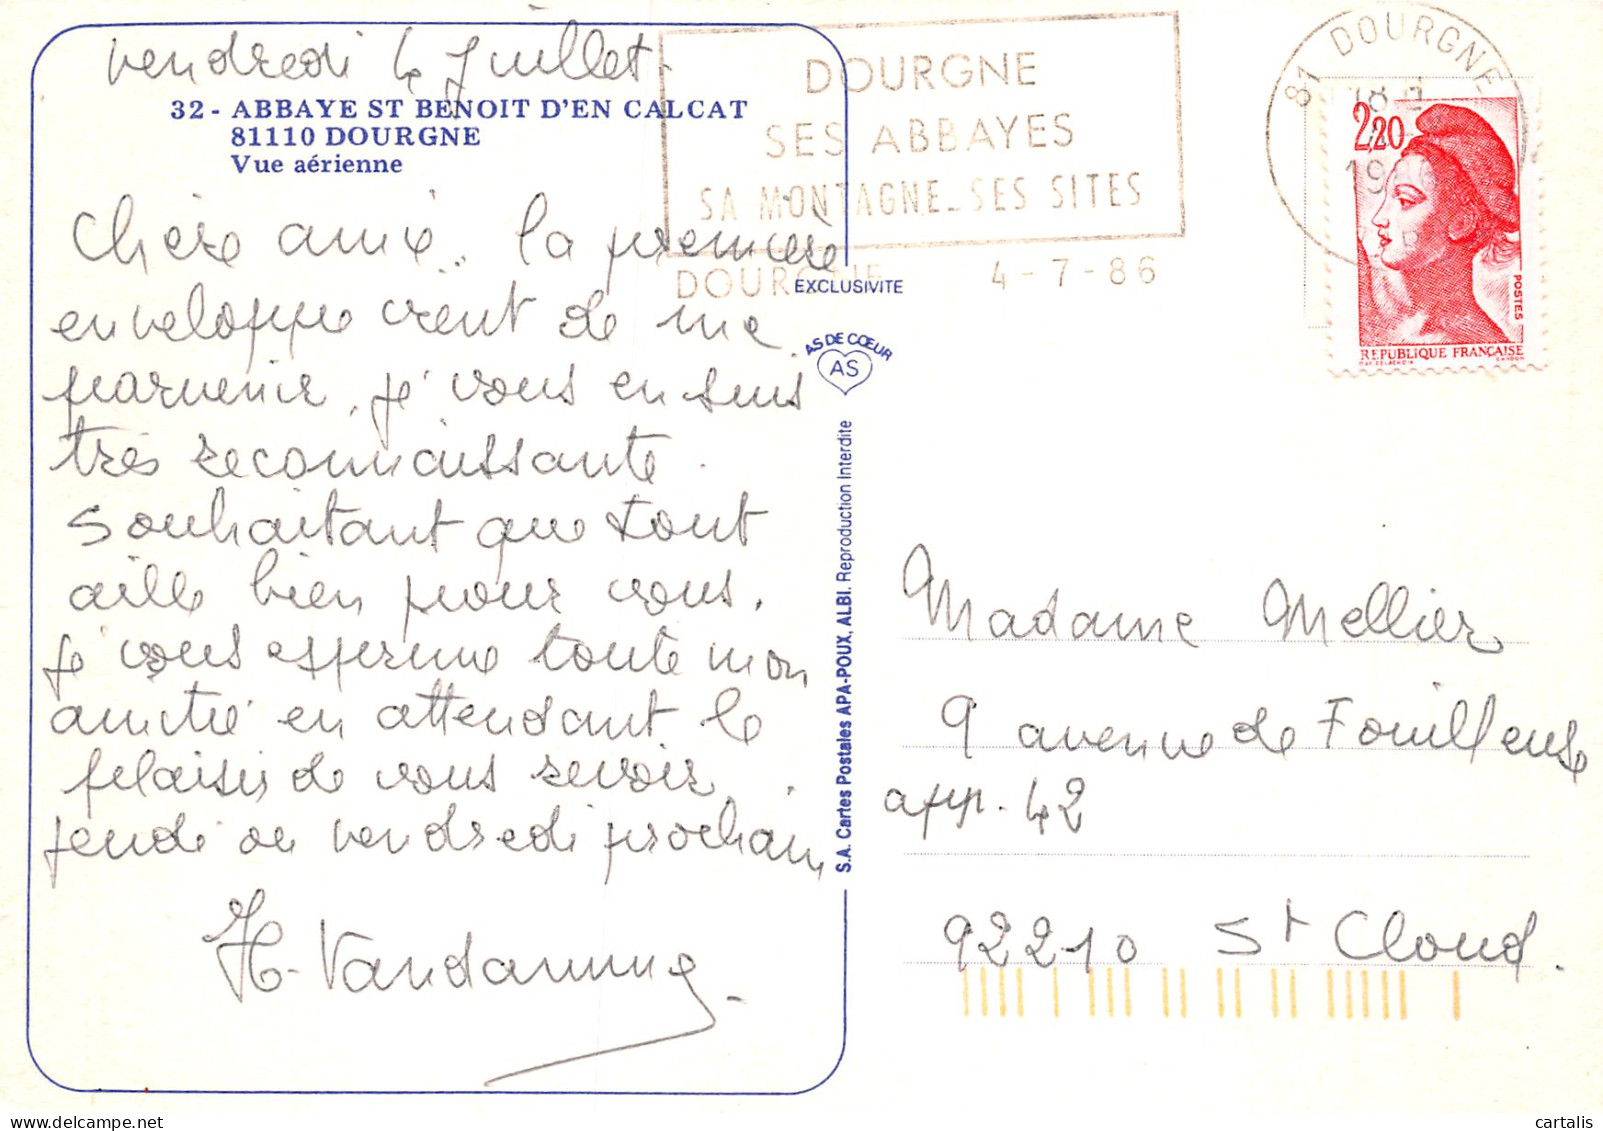 vendredi 4 Juillet.
32 - ABBAYE ST BENOIT D'EN CALCAT
81110 DOURGNE
Vue aérienne
Chère amie.. la première
enveloppe vient de me
parvenir, je vous en suis
très reconnaissante.
Souhaitant que tout
aille bien pour vous,
je vous exprime toute mon
amitié en attendant le
plaisir de vous revoir
jeudi ou vendredi prochain
H. Vandamme
DOURGNE
SES ABBAYES
SA MONTAGNE_SES SITES
DOURGNE 4-7-86
81 DOURGNE
18 H
19
2,20
POSTES
REPUBLIQUE FRANÇAISE
EXCLUSIVITE
AS DE CŒUR
AS
S.A. Cartes Postales APA-POUX, ALBI. Reproduction Interdite
Madame Mellier
9 avenue de Fouilleuse
app. 42
92210 St Cloud.
cartalis